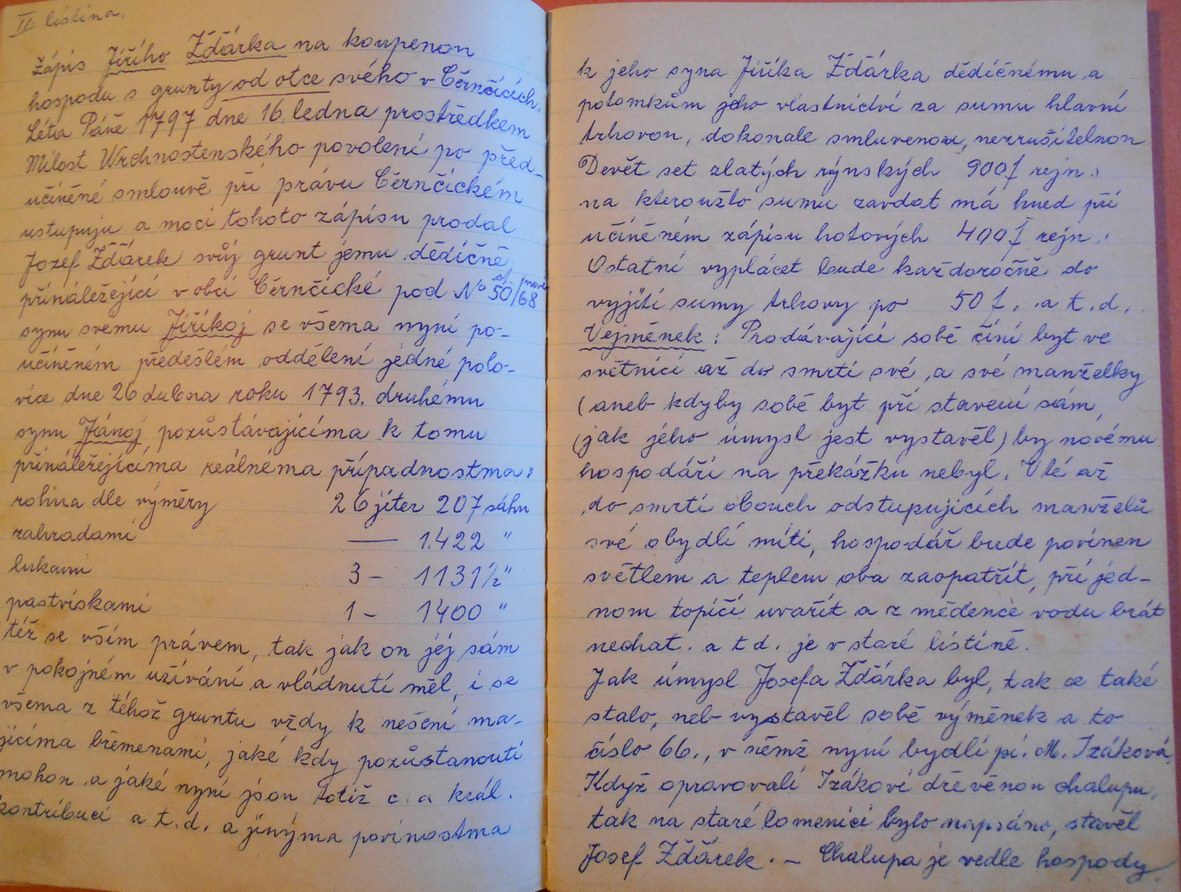 II. listina.
Zápis Jiřího Žďárka na koupenou
hospodu s grunty od otce svého v Černčicích.
Léta Páně 1797 dne 16. ledna prostředkem
Milost Wrchnostenského povolení po před-
učiněné smlouvě při právu Černčickém
ustupuju a mocí tohoto zápisu prodal
Jozef Žďárek svůj grunt jemu dědičně
přináležející v obci Černčické pod No 50/68
synu svemu Jiříkoj se všema nyní po-
učiněném předešlém oddělení jedné polo-
vice dne 26 dubna roku 1793. druhému
synu Jánoj pozůstávajícíma k tomu
přináležejícíma reálnema případnostma:
rolina dle výměry 26 jiter 207 sáhu
zahradami — 1.422 "
lukami 3 – 1131½ "
pastviskami 1 – 1400 "
též se vším právem, tak jak on jěj sám
v pokojném užívání a vládnutí měl, i se
všema z téhož gruntu vždy k nešení ma-
jícíma břemenami, jaké kdy pozůstanouti
mohou a jaké nyní jsou totiž c. a král.
kontribucí a t.d. a jinýma povinostma
k jeho syna Jiříka Žďárka dědičnému a
potomkům jeho vlastnictví za sumu hlavní
trhovou, dokonale smluvenou, nerrušitelnou
Devět set zlatých rýnských 900 f rejn.:
na kteroužto sumu zavdat má hned při
učiněném zápisu hotových 400 f rejn.:
Ostatní vyplácet bude každoročně do
vyjítí sumy trhovy po 50 f. a t.d.
Vejměnek: Prodávající sobě činí byt ve
světnici až do smrti své, a své manželky
(aneb kdyby sobě byt při stavení sám,
(jak jeho úmysl jest vystavěl) by novému
hospodáři na překážku nebyl. Vlé až
do smrti obouch odstupujících manželů
své obydlí míti, hospodář bude povinen
světlem a teplem oba zaopatřit, při jed-
nom topiči uvařit a z měděnce vodu brát
nechat. a t d. je v staré listině.
Jak úmysl Josefa Žďárka byl, tak se také
stalo, neb vystavěl sobě výměnek a to
číslo 66., v němž nyní bydlí pí. M. Izáková.
Když opravovali Izákovi dřevěnou chalupu,
tak na staré lomenici bylo napsáno, stavěl
Josef Žďárek. — Chalupa je vedle hospody.